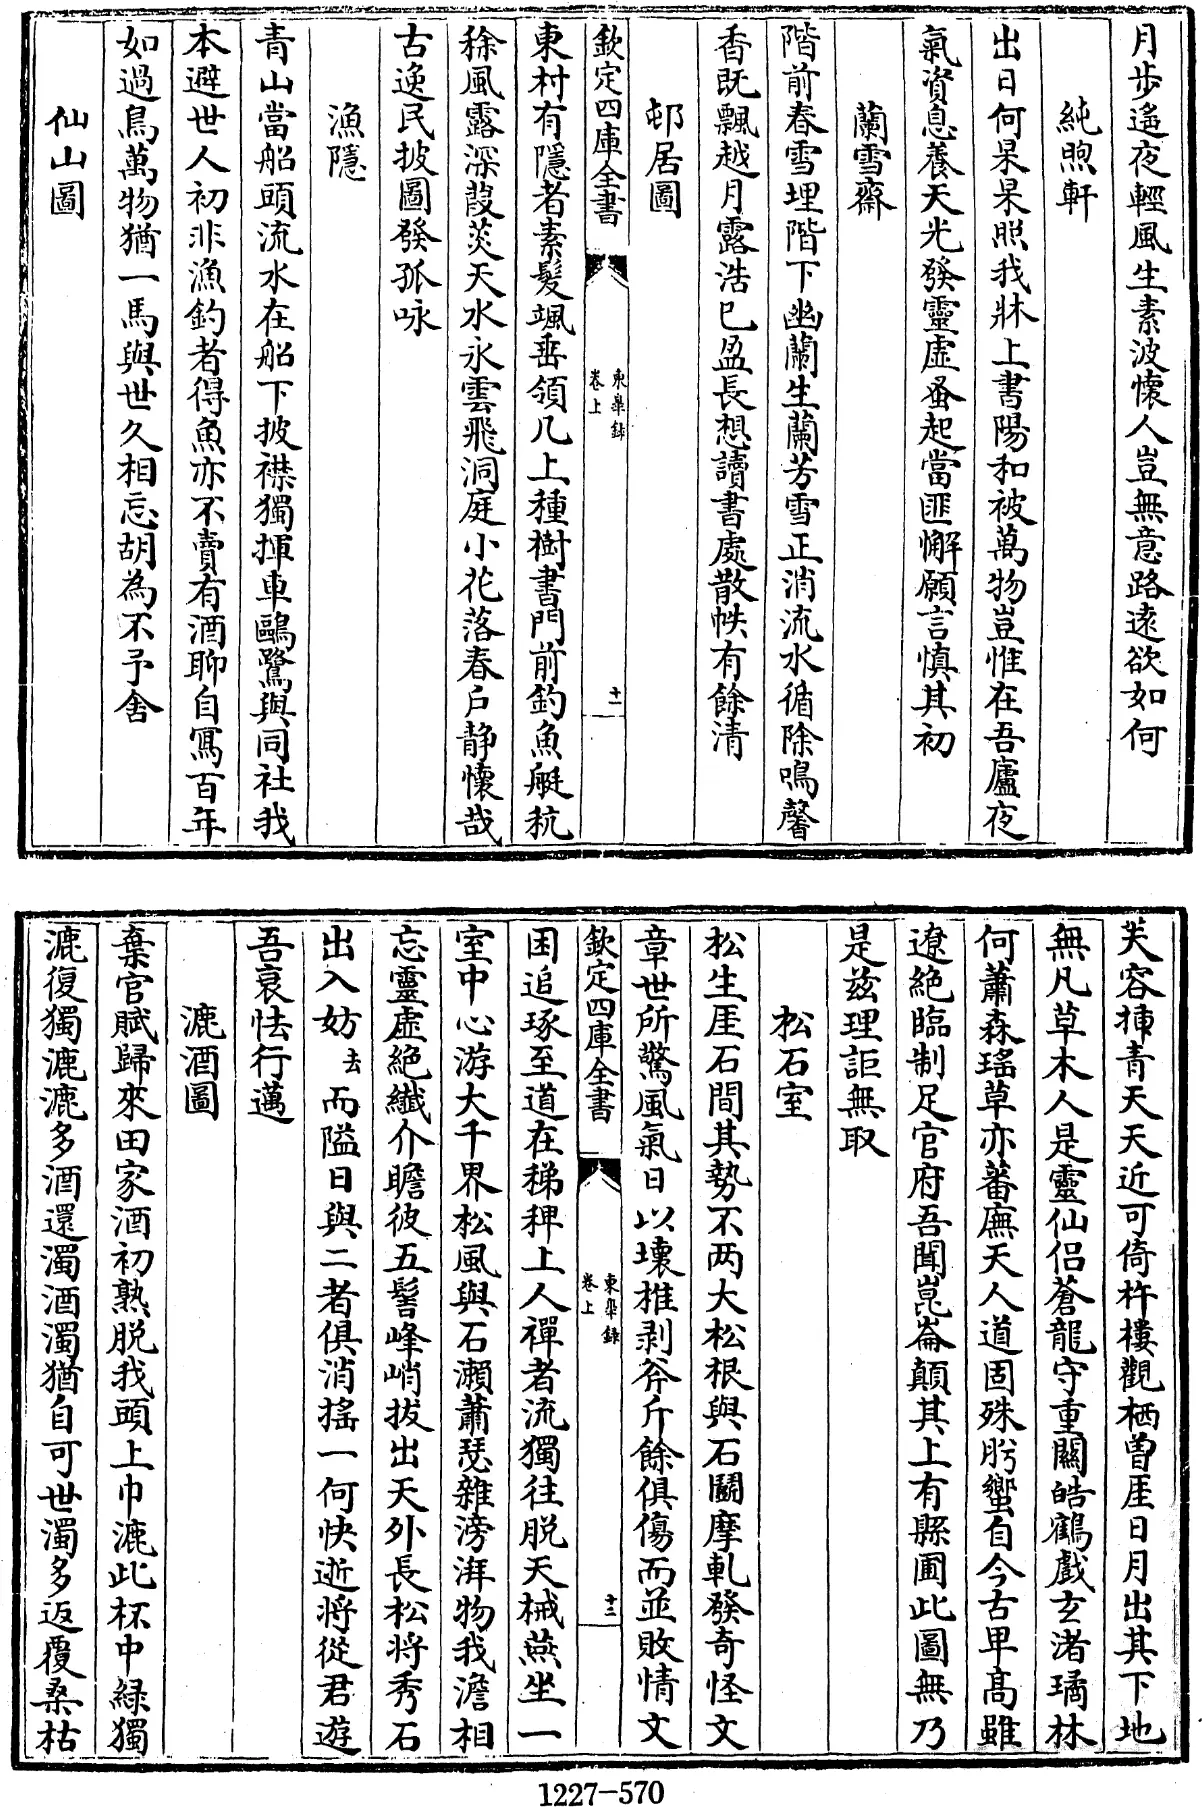 月歩遙夜輕風生素波懐人豈無意路逺欲如何
純煦軒
出日何杲杲照我牀上書陽和被萬物豈惟在吾廬夜
氣資息養天光發靈虛蚤起當匪懈願言慎其初
蘭雪齋
階前春雪埋階下幽蘭生蘭芳雪正消流水循除鳴馨
香既飄越月露浩已盈長想讀書處散帙有餘清
邨居圖
欽定四庫全書
東臯錄
卷上
十二
東村有隱者素髮颯垂領几上種樹書門前釣魚艇秔
稌風露深葭菼天水永雲飛洞庭小花落春戸静懐哉
古逸民披圖發孤咏
漁隱
青山當船頭流水在船下披襟獨揮車鷗鷺與同社我
本避世人初非漁釣者得魚亦不賣有酒聊自寫百年
如過鳥萬物猶一馬與世久相忘胡為不予舍
仙山圖
芙容揷青天天近可倚杵樓觀栖曽厓日月出其下地
無凡草木人是靈仙侣蒼龍守重關皓鶴戲玄渚璚林
何蕭森瑤草亦蕃廡天人道固殊肹蠁自今古卑髙雖
遼絶臨制足官府吾聞崑崙顛其上有縣圃此圖無乃
是兹理詎無取
松石室
松生厓石間其勢不两大松根與石鬬摩軋發奇怪文
章世所驚風氣日以壞推剥斧斤餘俱傷而並敗情文
欽定四庫全書
東臯錄
卷上
十三
困追琢至道在稊稗上人禪者流獨往脱天械燕坐一
室中心游大千界松風與石瀨蕭瑟雜滂湃物我澹相
忘靈虛絶纎介瞻彼五髻峰峭拔出天外長松將秀石
出入妨去而隘日與二者俱消搖一何快逝將從君遊
吾衰怯行邁
漉酒圖
棄官賦歸來田家酒初熟脱我頭上巾漉此杯中緑獨
漉復獨漉漉多酒還濁酒濁猶自可世濁多返覆桑枯
1227-570